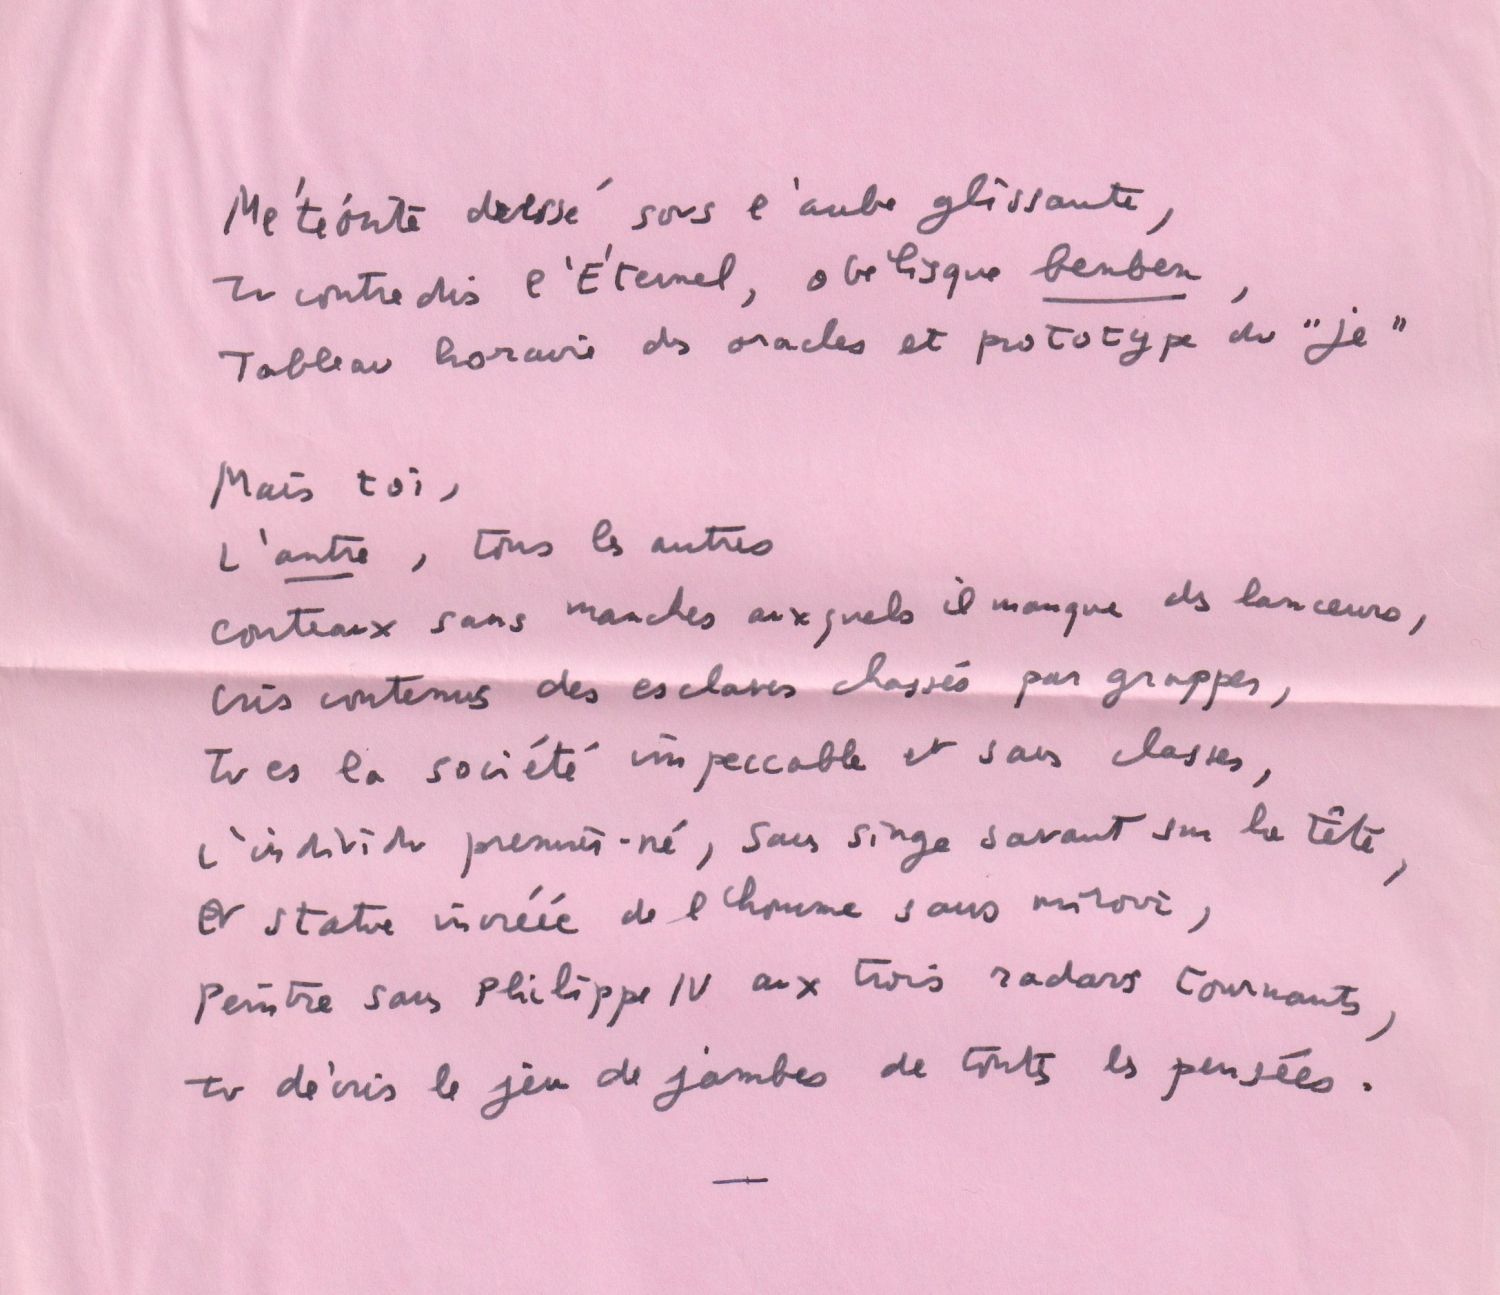 Météorite dressé sous l'aube glissante,
Tu contredis l'Éternel, obélisque benben,
Tableau horaire des oracles et prototype du "je"
Mais toi,
L'autre, tous les autres
couteaux sans manches auxquels il manque des lanceurs,
cris contenus des esclaves chassés par grappes,
Tu es la société impeccable et sans classes,
L'individu premier-né, sans singe savant sur la tête,
Et statue incréée de l'homme sans miroir,
Peintre sans Philippe IV aux trois radars tournants,
Tu décris le jeu de jambes de toutes les pensées.